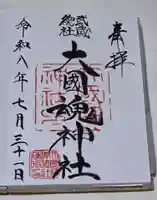 奉拝
武蔵
總社
大國魂神社
令和八年七月三十一日